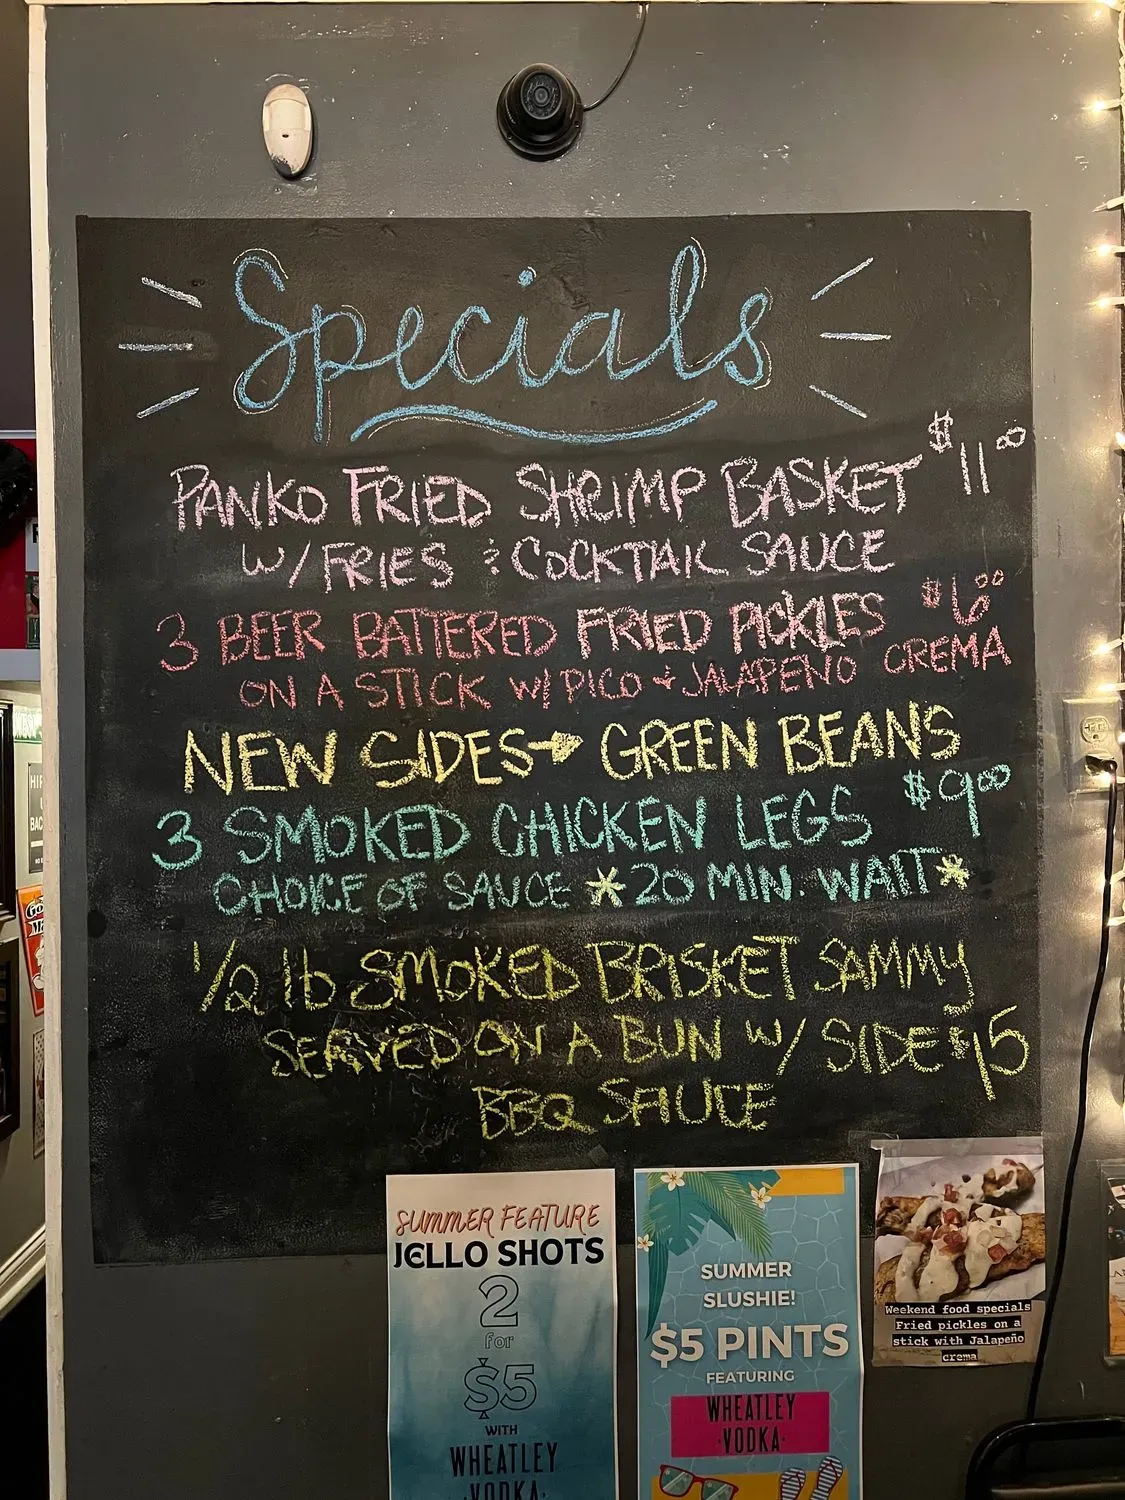 Specials
PANKO FRIED SHRIMP BASKET $1100
W/ FRIES & COCKTAIL SAUCE
3 BEER BATTERED FRIED PICKLES $6.00
ON A STICK W/ PICO + JALAPEÑO CREMA
NEW SIDES→ GREEN BEANS
3 SMOKED CHICKEN LEGS $9.00
CHOICE OF SAUCE *20 MIN. WAIT*
1/2 lb SMOKED BRISKET SAMMY
SERVED ON A BUN W/ SIDE $15
BBQ SAUCE
SUMMER FEATURE
JELLO SHOTS
2
for
$5
WITH
WHEATLEY
VODKA
SUMMER
SLUSHIE!
$5 PINTS
FEATURING
WHEATLEY
·VODKA·
Weekend food specials
Fried pickles on a
stick with Jalapeño
crema